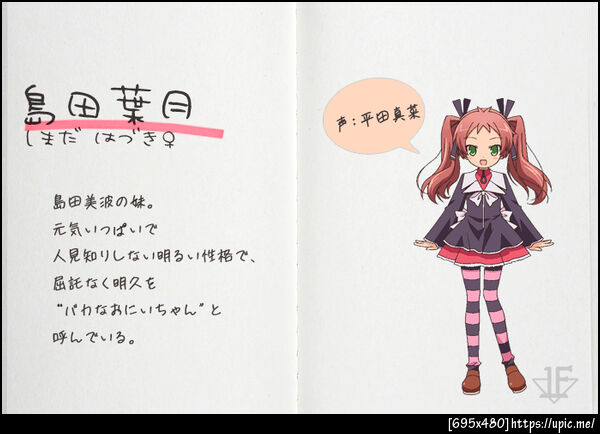 島田葉月
しまだ はづき♀
島田美波の妹。
元気いっぱいで
人見知りしない明るい性格で、
屈託なく明久を
“バカなおにいちゃん”と
呼んでいる。
声：平田真菜
1F
[695x480]https://upic.me/